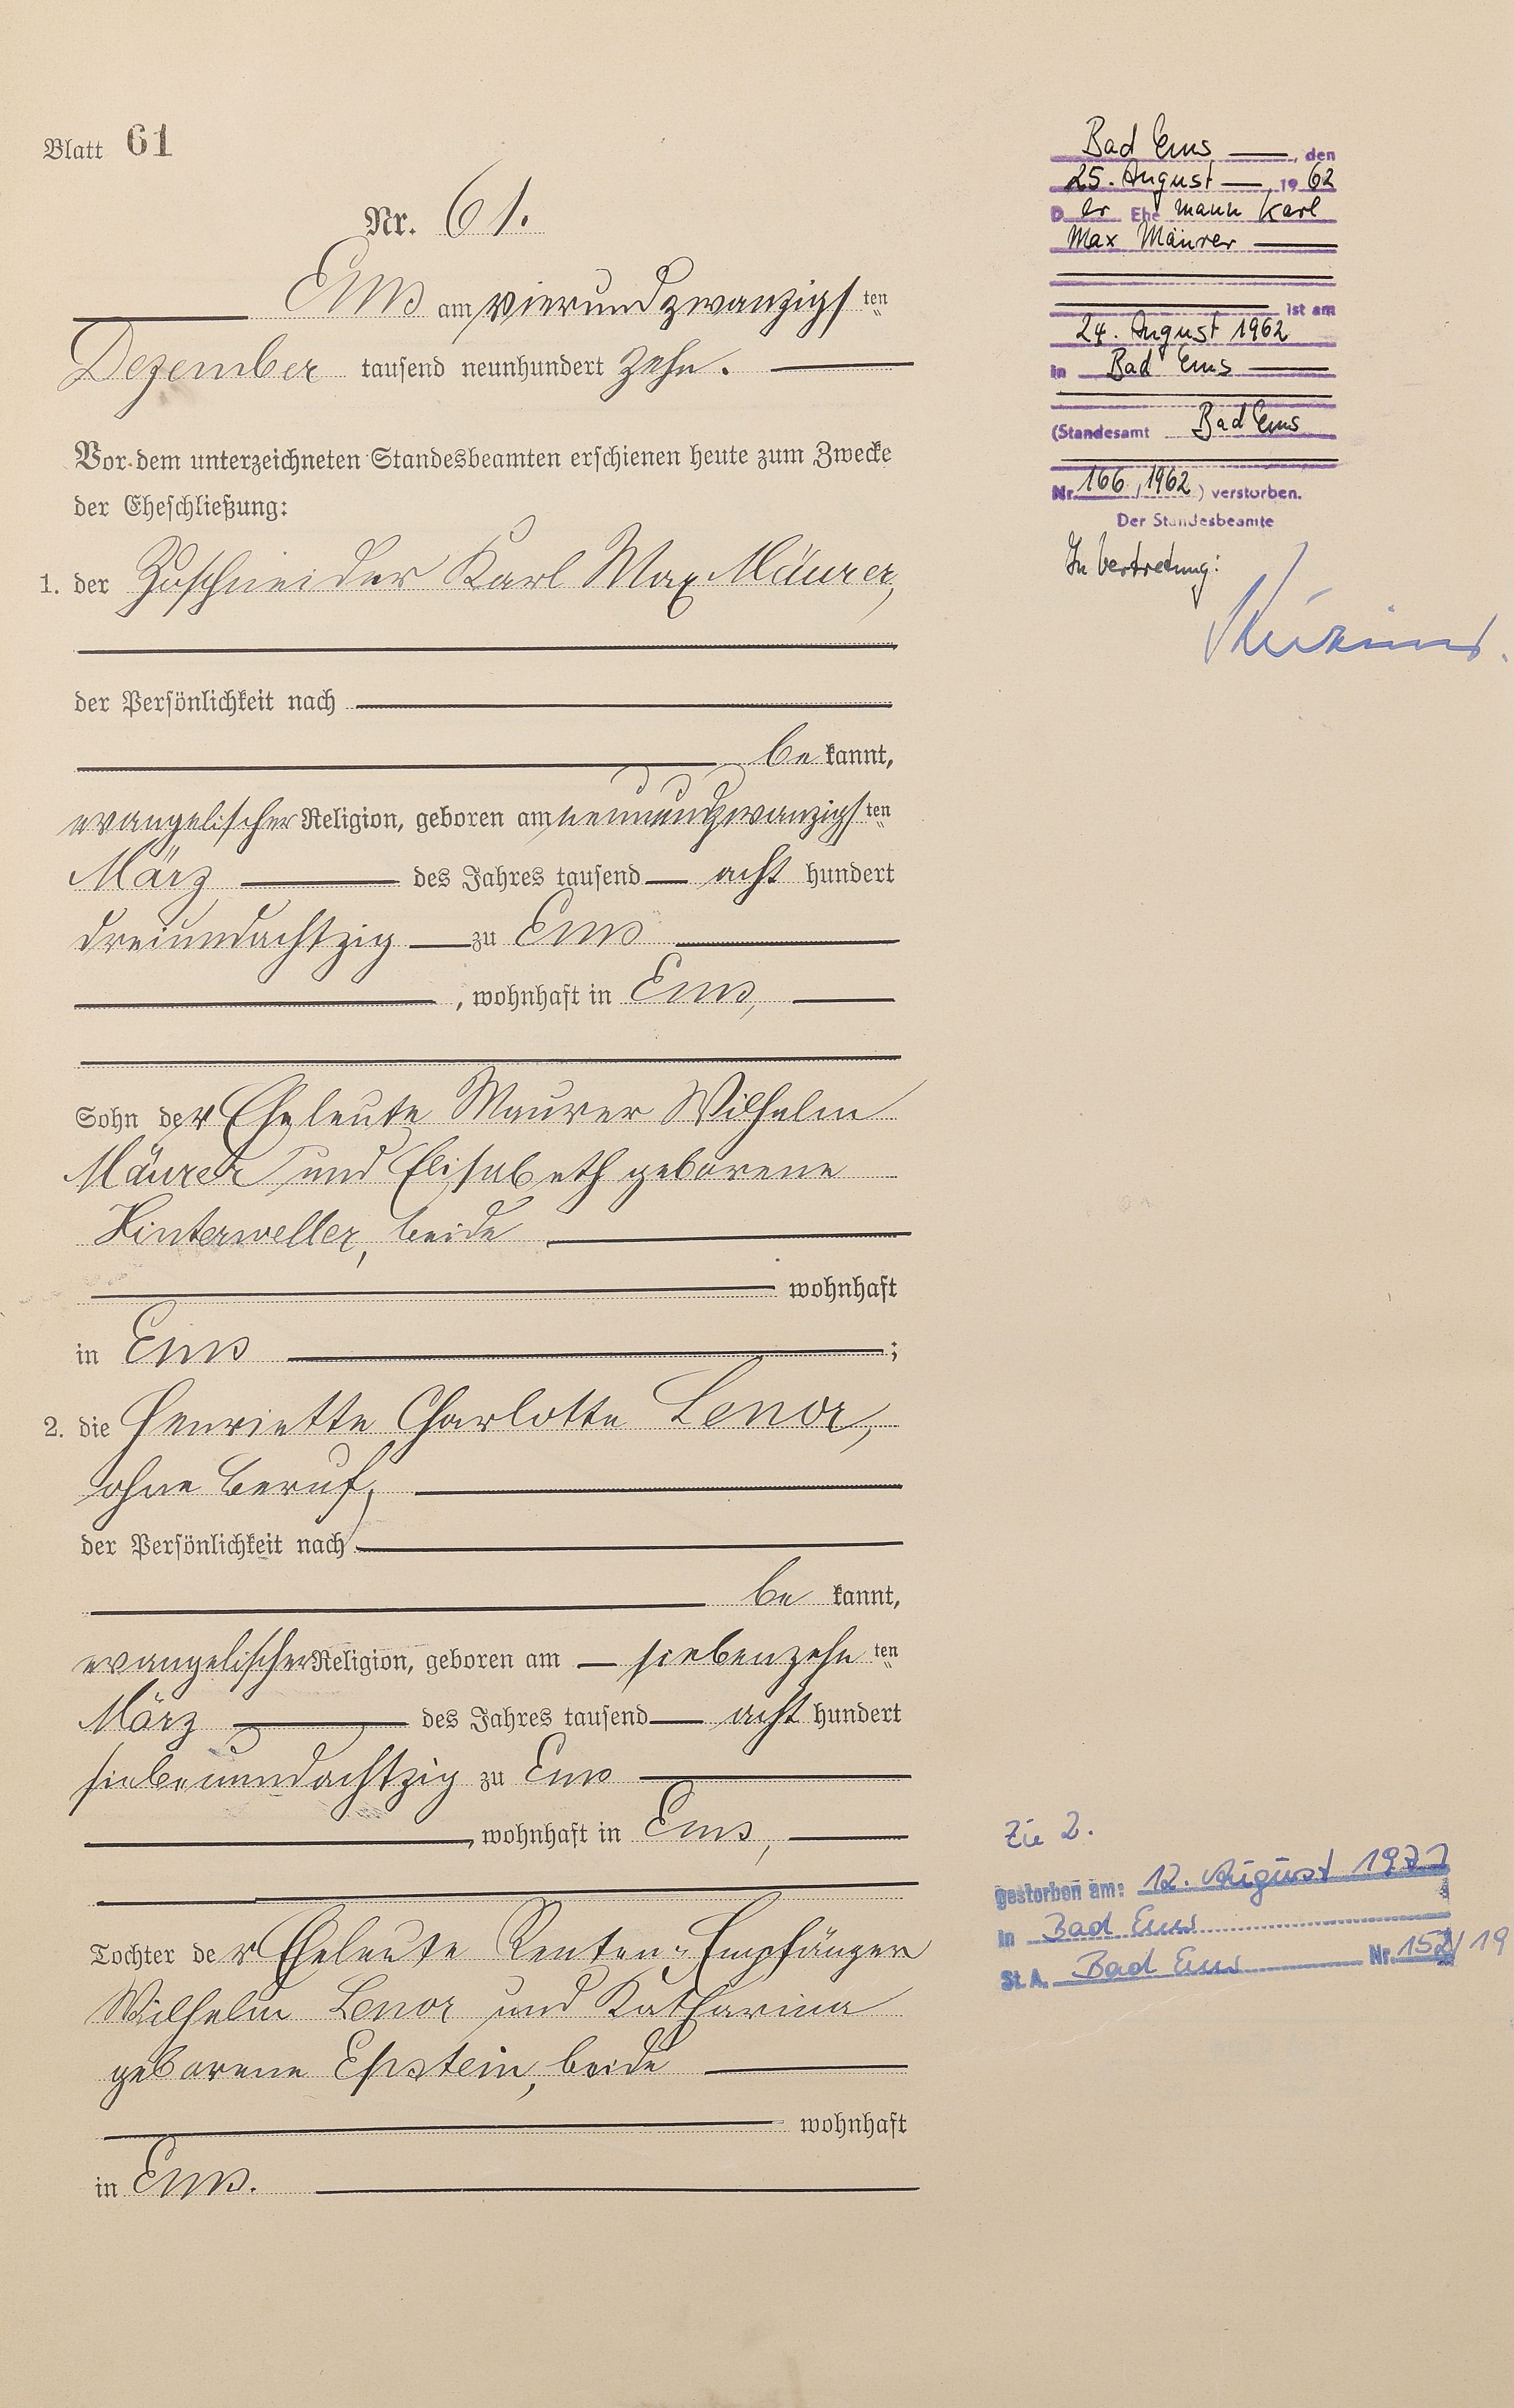 Blatt 61
Nr. 61.
Ems am vierundzwanzigs ten
Dezember tausend neunhundert zehn.
Vor dem unterzeichneten Standesbeamten erschienen heute zum Zwecke
der Eheschließung:
1. der Zuschneider Karl Max Mäurer,
der Persönlichkeit nach
be kannt,
evangelischer Religion, geboren am neunundzwanzigs ten
März des Jahres tausend acht hundert
dreiundachtzig zu Ems
, wohnhaft in Ems,
Sohn der Eheleute Maurer Wilhelm
Mäurer und Elisabeth geborene
Hinterweller, beide
wohnhaft
in Ems ;
2. die Henriette Charlotte Lenor,
ohne Beruf,
der Persönlichkeit nach
be kannt,
evangelischer Religion, geboren am siebenzehn ten
März des Jahres tausend acht hundert
siebenundachtzig zu Ems
, wohnhaft in Ems,
Tochter der Eheleute Renten-Empfänger
Wilhelm Lenor und Katharina
geborene Epstein, beide
wohnhaft
in Ems.
Bad Ems, den
25. August 1962
Der Ehemann Karl
Max Mäurer
ist am
24. August 1962
in Bad Ems
(Standesamt Bad Ems
Nr. 166, 1962) verstorben.
Der Standesbeamte
In Vertretung:
Zu 2.
gestorben am: 12. August 1977
in Bad Ems
St. A. Bad Ems Nr. 152/19